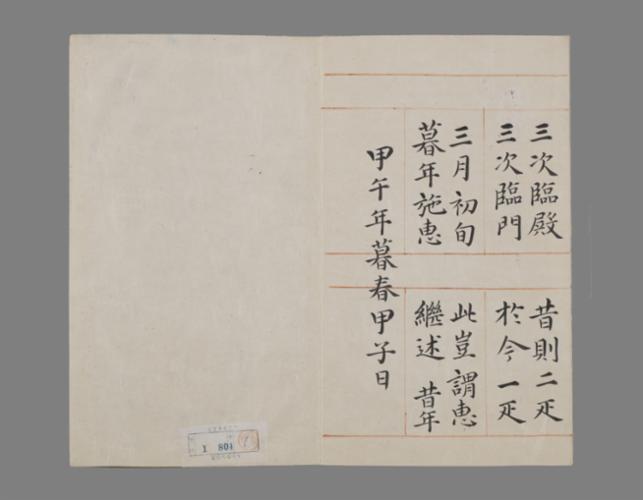 三次臨殿
三次臨門
三月初旬
暮年施惠
昔則二疋
於今一疋
此豈謂惠
繼述 昔年
甲午年暮春甲子日